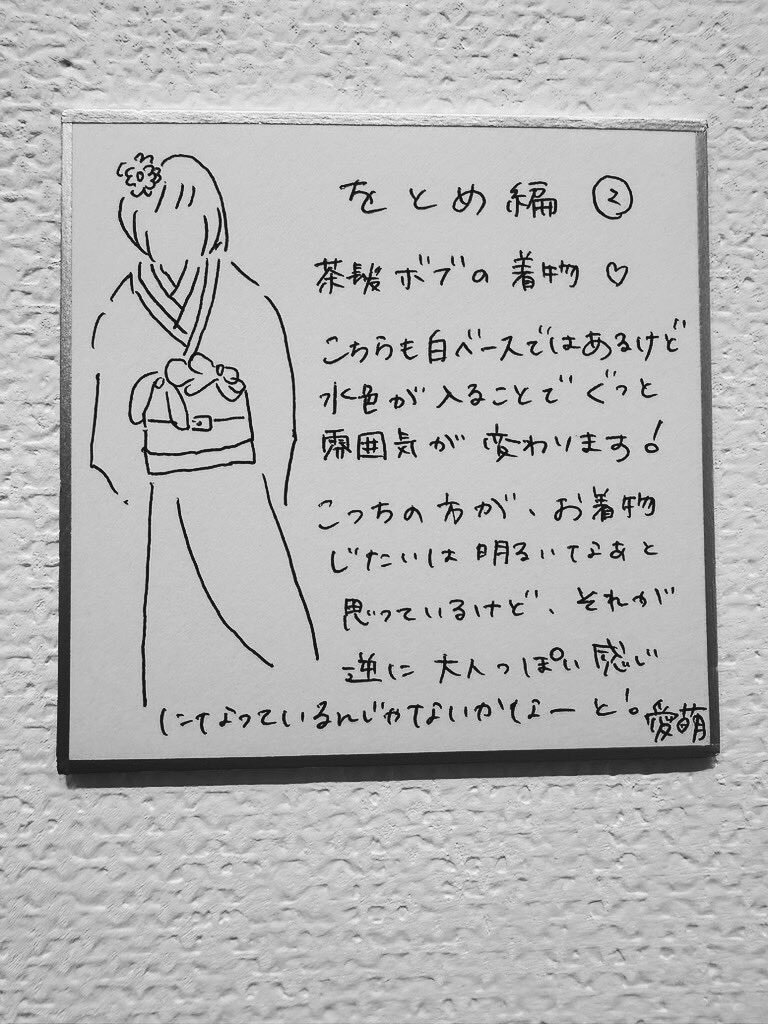 をとめ編 ②
茶髪ボブの着物♡
こちらも白ベースではあるけど
水色が入ることでぐっと
雰囲気が変わります!
こっちの方が、お着物
じたいは明るいなあと
思っているけど、それが
逆に大人っぽい感じ
になっているんじゃないかなーと!
愛萌